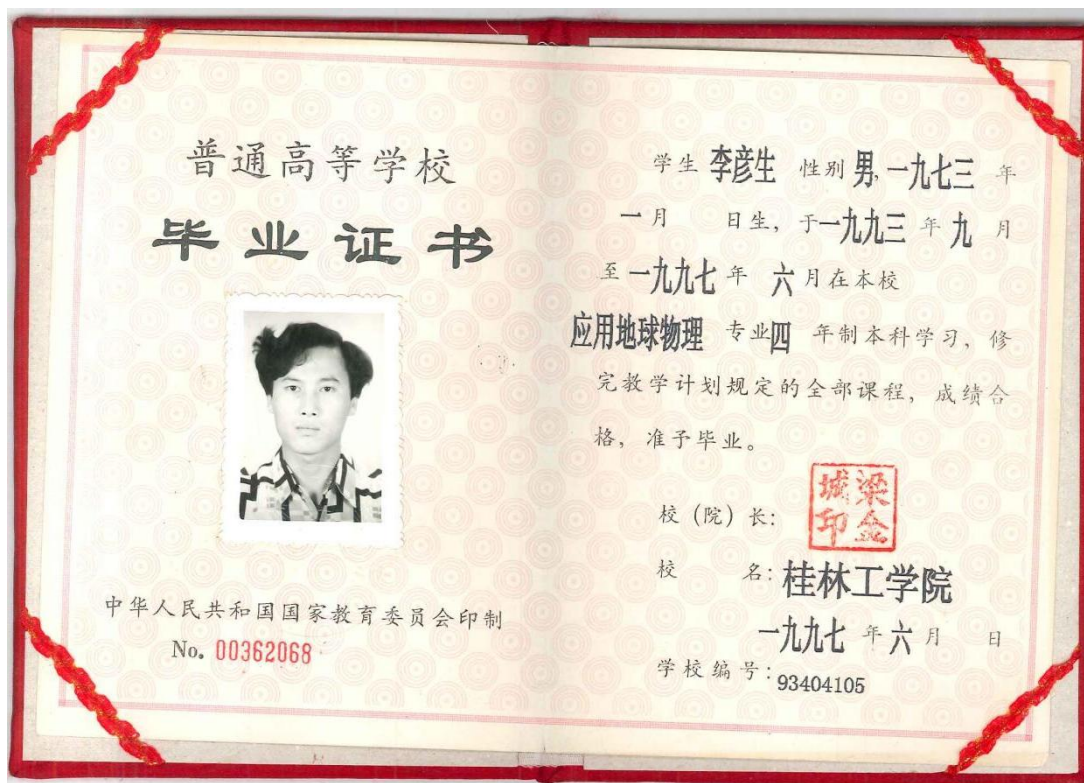 普通高等学校
毕业证书
中华人民共和国国家教育委员会印制
No. 00362068
学生 李彦生 性别 男, 一九七三 年
一月 日生, 于一九九三 年 九 月
至 一九九七 年 六 月在本校
应用地球物理 专业四 年制本科学习, 修
完教学计划规定的全部课程, 成绩合
格, 准予毕业。
校(院)长: 梁金城印
校 名: 桂林工学院
一九九七 年 六 月 日
学校编号: 93404105